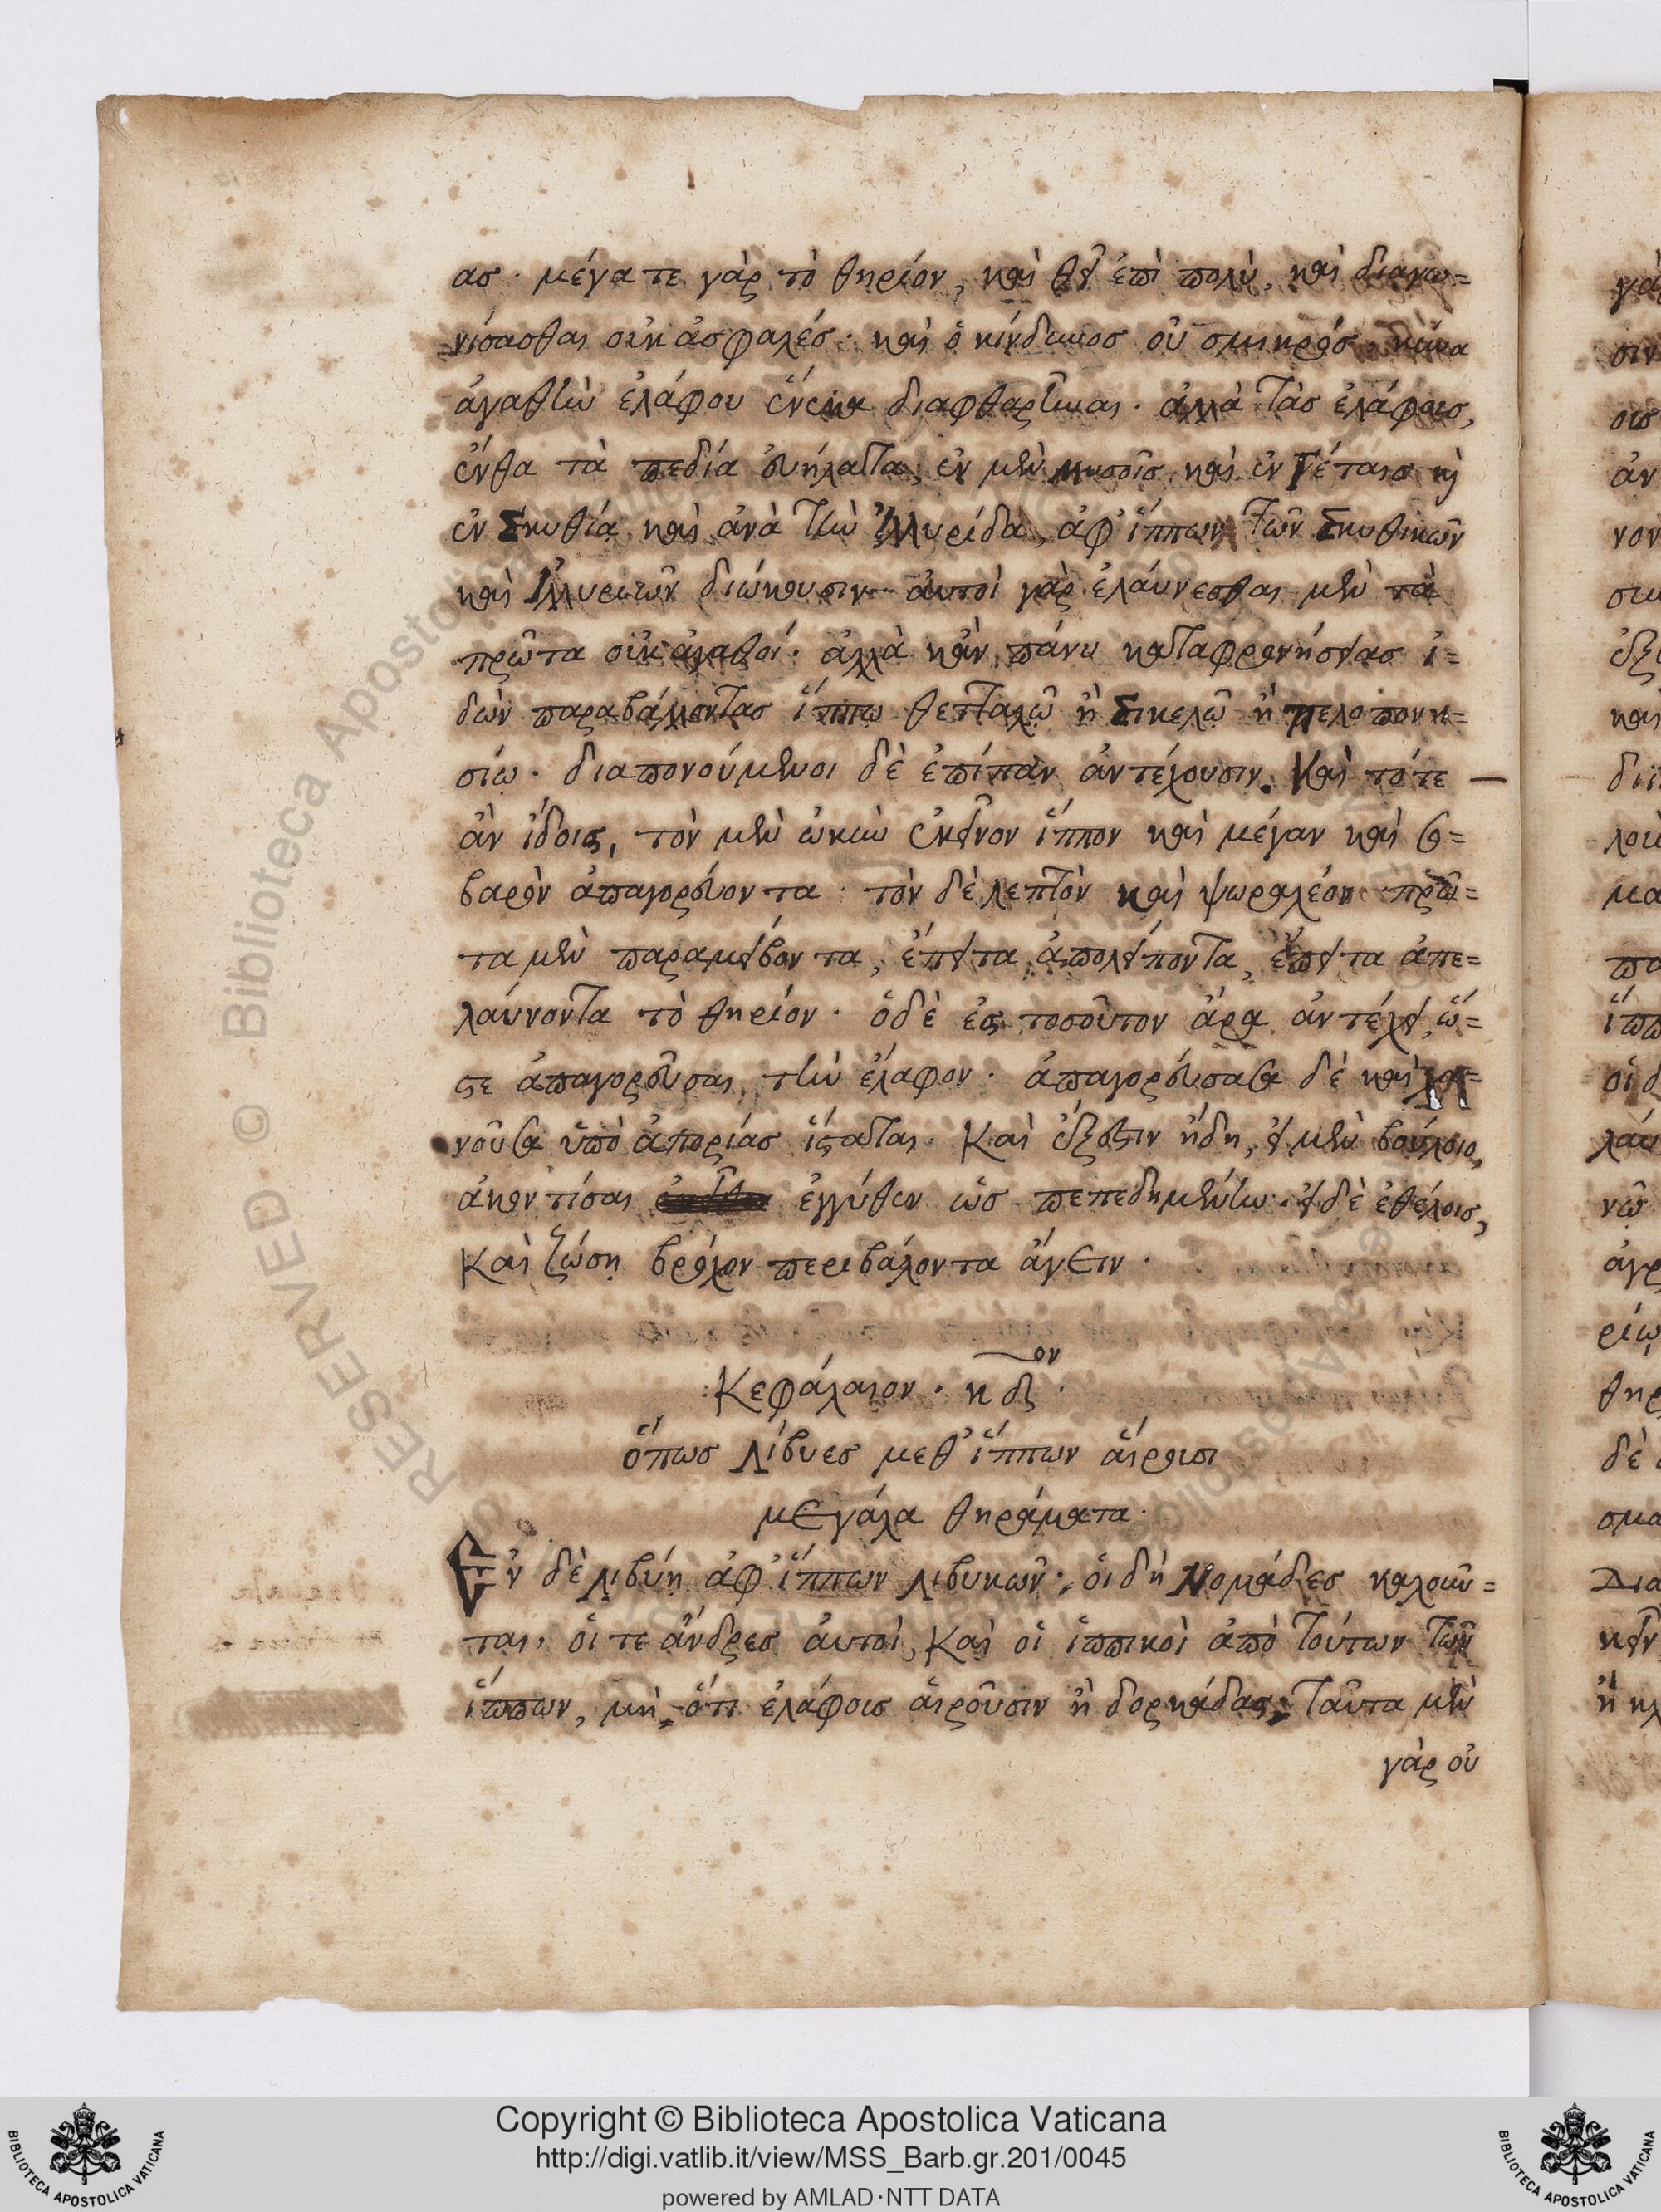 ας· μέγα τε γὰρ τὸ θηρίον, καὶ θεῖ ἐπὶ πολὺ, καὶ διαγω=
νίσασθαι οὐκ ἀσφαλές· καὶ ὁ κίνδυνος οὐ σμικρός, κύνα
ἀγαθὴν ἐλάφου ἕνεκα διαφθαρῆναι· ἀλλὰ τὰς ἐλάφους,
ἔνθα τὰ πεδία εὐήλατα, ἐν μὲν μυσοῖς καὶ ἐν Γέταις κὶ
ἐν Σκυθίᾳ καὶ ἀνὰ τὴν Ἰλλυρίδα, ἀφ' ἵππων τῶν Σκυθικῶν
καὶ Ἰλλυριῶν διώκουσιν· ἀυτοὶ γὰρ ἐλάυνεσθαι μὲν τὰ
πρῶτα οὐκ ἀγαθοί· ἀλλὰ κἂν πάνυ καταφρονήσειας ἰ=
δὼν παραβάλλοντας ἵππω θετταλῶ ἢ Σικελῶ ἢ πελοπονη=
σίω· διαπονούμενοι δὲ ἐπίπαν ἀντέχουσιν. Καὶ τότε
ἂν ἴδοις, τὸν μὲν ὠκὺν ἐκεῖνον ἵππον καὶ μέγαν καὶ σο=
βαρὸν ἀπαγορεύοντα· τὸν δὲ λεπτὸν καὶ ψωραλέον πρῶ=
τα μὲν παραμείβοντα, ἔπειτα ἀπολείποντα, ἔπειτα ἀπε=
λάυνοντα τὸ θηρίον· ὁδὲ ἐς τοσοῦτον ἄρα ἀντέχει, ὥ=
στε ἀπαγορεῦσαι τὴν ἔλαφον· ἀπαγορεύσασα δὲ καὶ χα=
νοῦσα ὑπὸ ἀπορίας ἵσταται. Καὶ ἔξεστιν ἤδη, εἰ μὲν βούλοιο,
ἀκοντίσαι ἐγγύθεν ὡς πεπεδημένην· εἰ δὲ ἐθέλοις,
Καὶ ζώσῃ βρόχον περιβάλοντα ἄγειν·
Κεφάλαιον· κδον·
ὅπως Λίβυες μεθ' ἵππων ἁίρουσι
μεγάλα θηράματα·
Ἐν δὲ Λιβύῃ ἀφ' ἵππων Λιβυκῶν· ὁι δὴ Νομάδες καλοῦν=
ται, ὅι τε ἄνδρες ἀυτοὶ, Καὶ οἱ ἱππικοὶ ἀπὸ τούτων τῶν
ἵππων, μὴ ὅτι ἐλάφους ἁιροῦσιν ἢ δορκάδας, ταῦτα μὲν
γὰρ οὐ
Copyright © Biblioteca Apostolica Vaticana
http://digi.vatlib.it/view/MSS_Barb.gr.201/0045
powered by AMLAD·NTT DATA